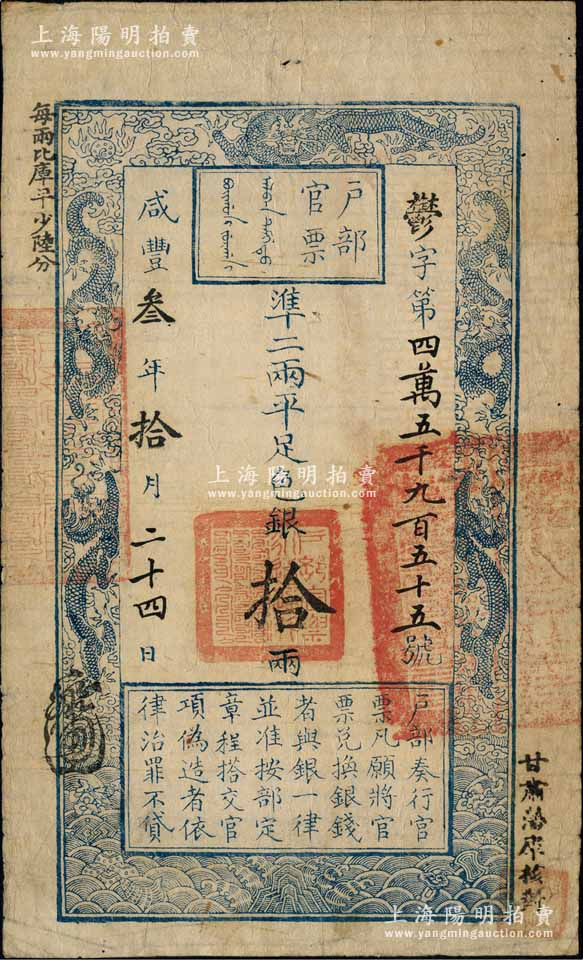 上海陽明拍賣
www.yangmingauction.com
上海陽明拍賣
www.yangmingauction.com
每兩比庫平少陸分
戶部
官票
鬱字第四萬五千九百五十五號
準二兩平足色銀拾兩
咸豐叁年拾月二十四日
上海陽明拍賣
www.yangmingauction.com
戶部奏行官
票凡願將官
票兌換銀錢
者與銀一律
並准按部定
章程搭交官
項偽造者依
律治罪不貸
甘肅藩庫核對
上海陽明拍賣
www.yangmingauction.com